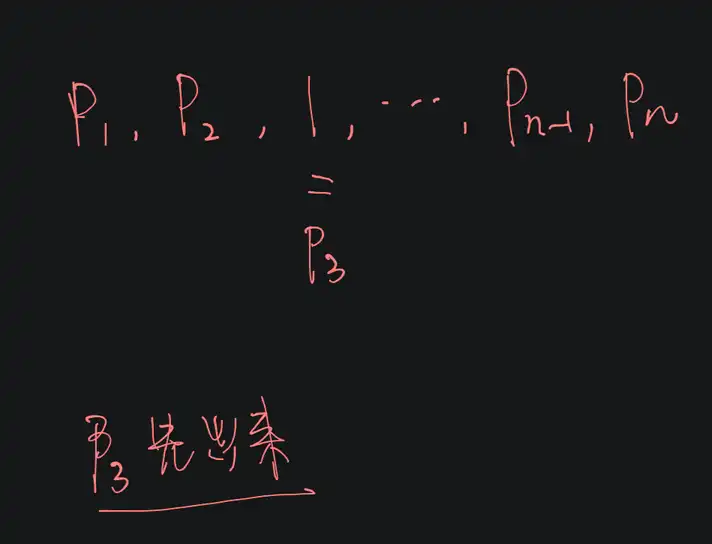 P₁, P₂, 1, ⋯, Pₙ₋₁, Pₙ
=
P₃
P₃ 先出来